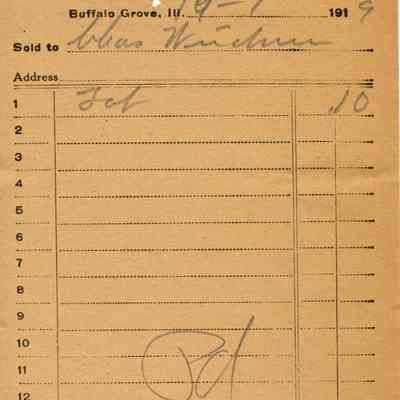 Buffalo Grove, Ill. 1919
Sold to Chas
Address
1 .10
2
3
4
5
6
7
8
9
10 Pd
11
12